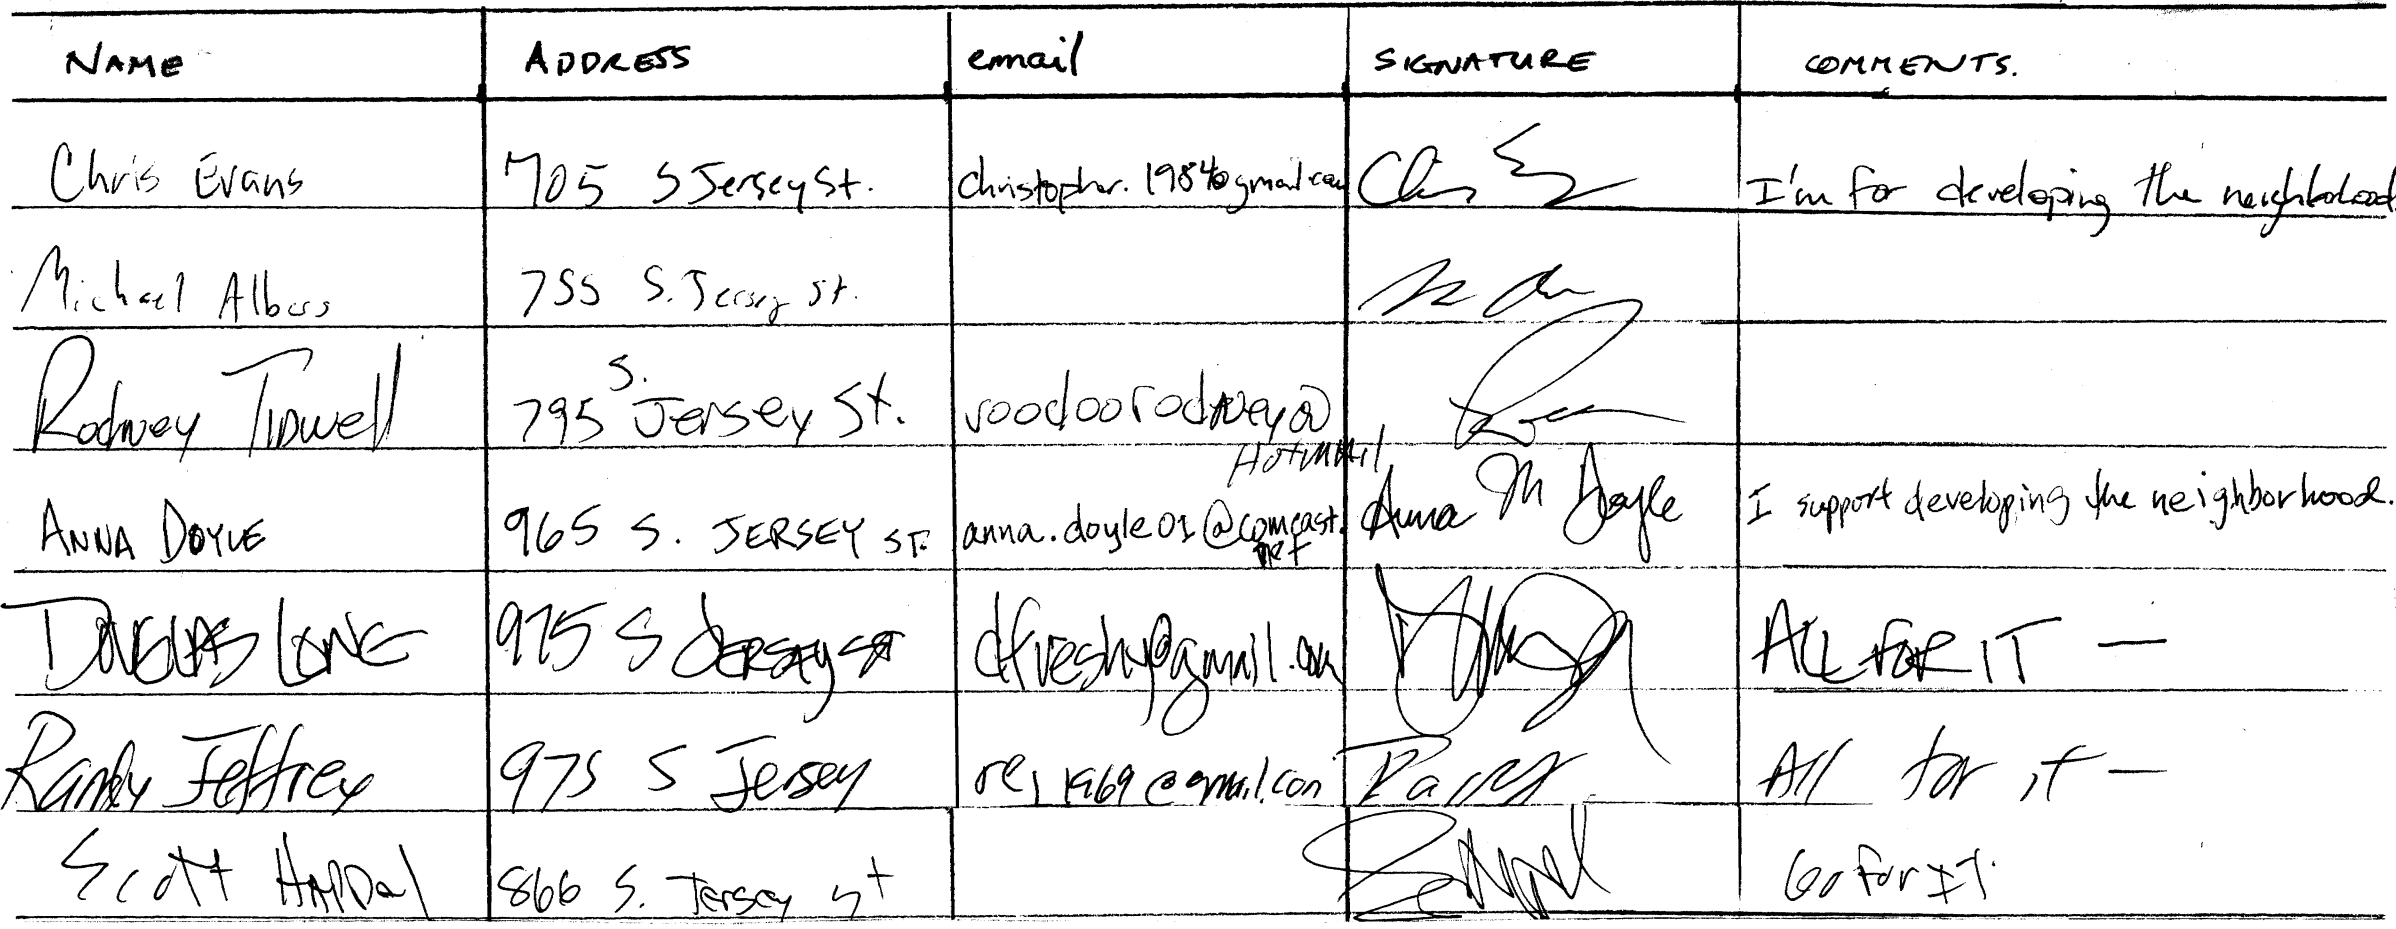 NAME ADDRESS email SIGNATURE COMMENTS.
Chris Evans 705 S Jersey St. christopher.1984@gmail.com I'm for developing the neighborhood.
Michael Albers 755 S. Jersey St.
Rodney Tidwell 795 S. Jersey St. voodoorodney@
Hotmail
ANNA DOYLE 965 S. JERSEY ST. anna.doyle01@comcast. Anna M Doyle I support developing the neighborhood.
net
DOUGLAS LONG 975 S JERSEY ST dfreshy@gmail.com ALL FOR IT —
Randy Jeffrey 975 S Jersey rej1969@gmail.com All for it —
Scott 866 S. Jersey St Go For IT.